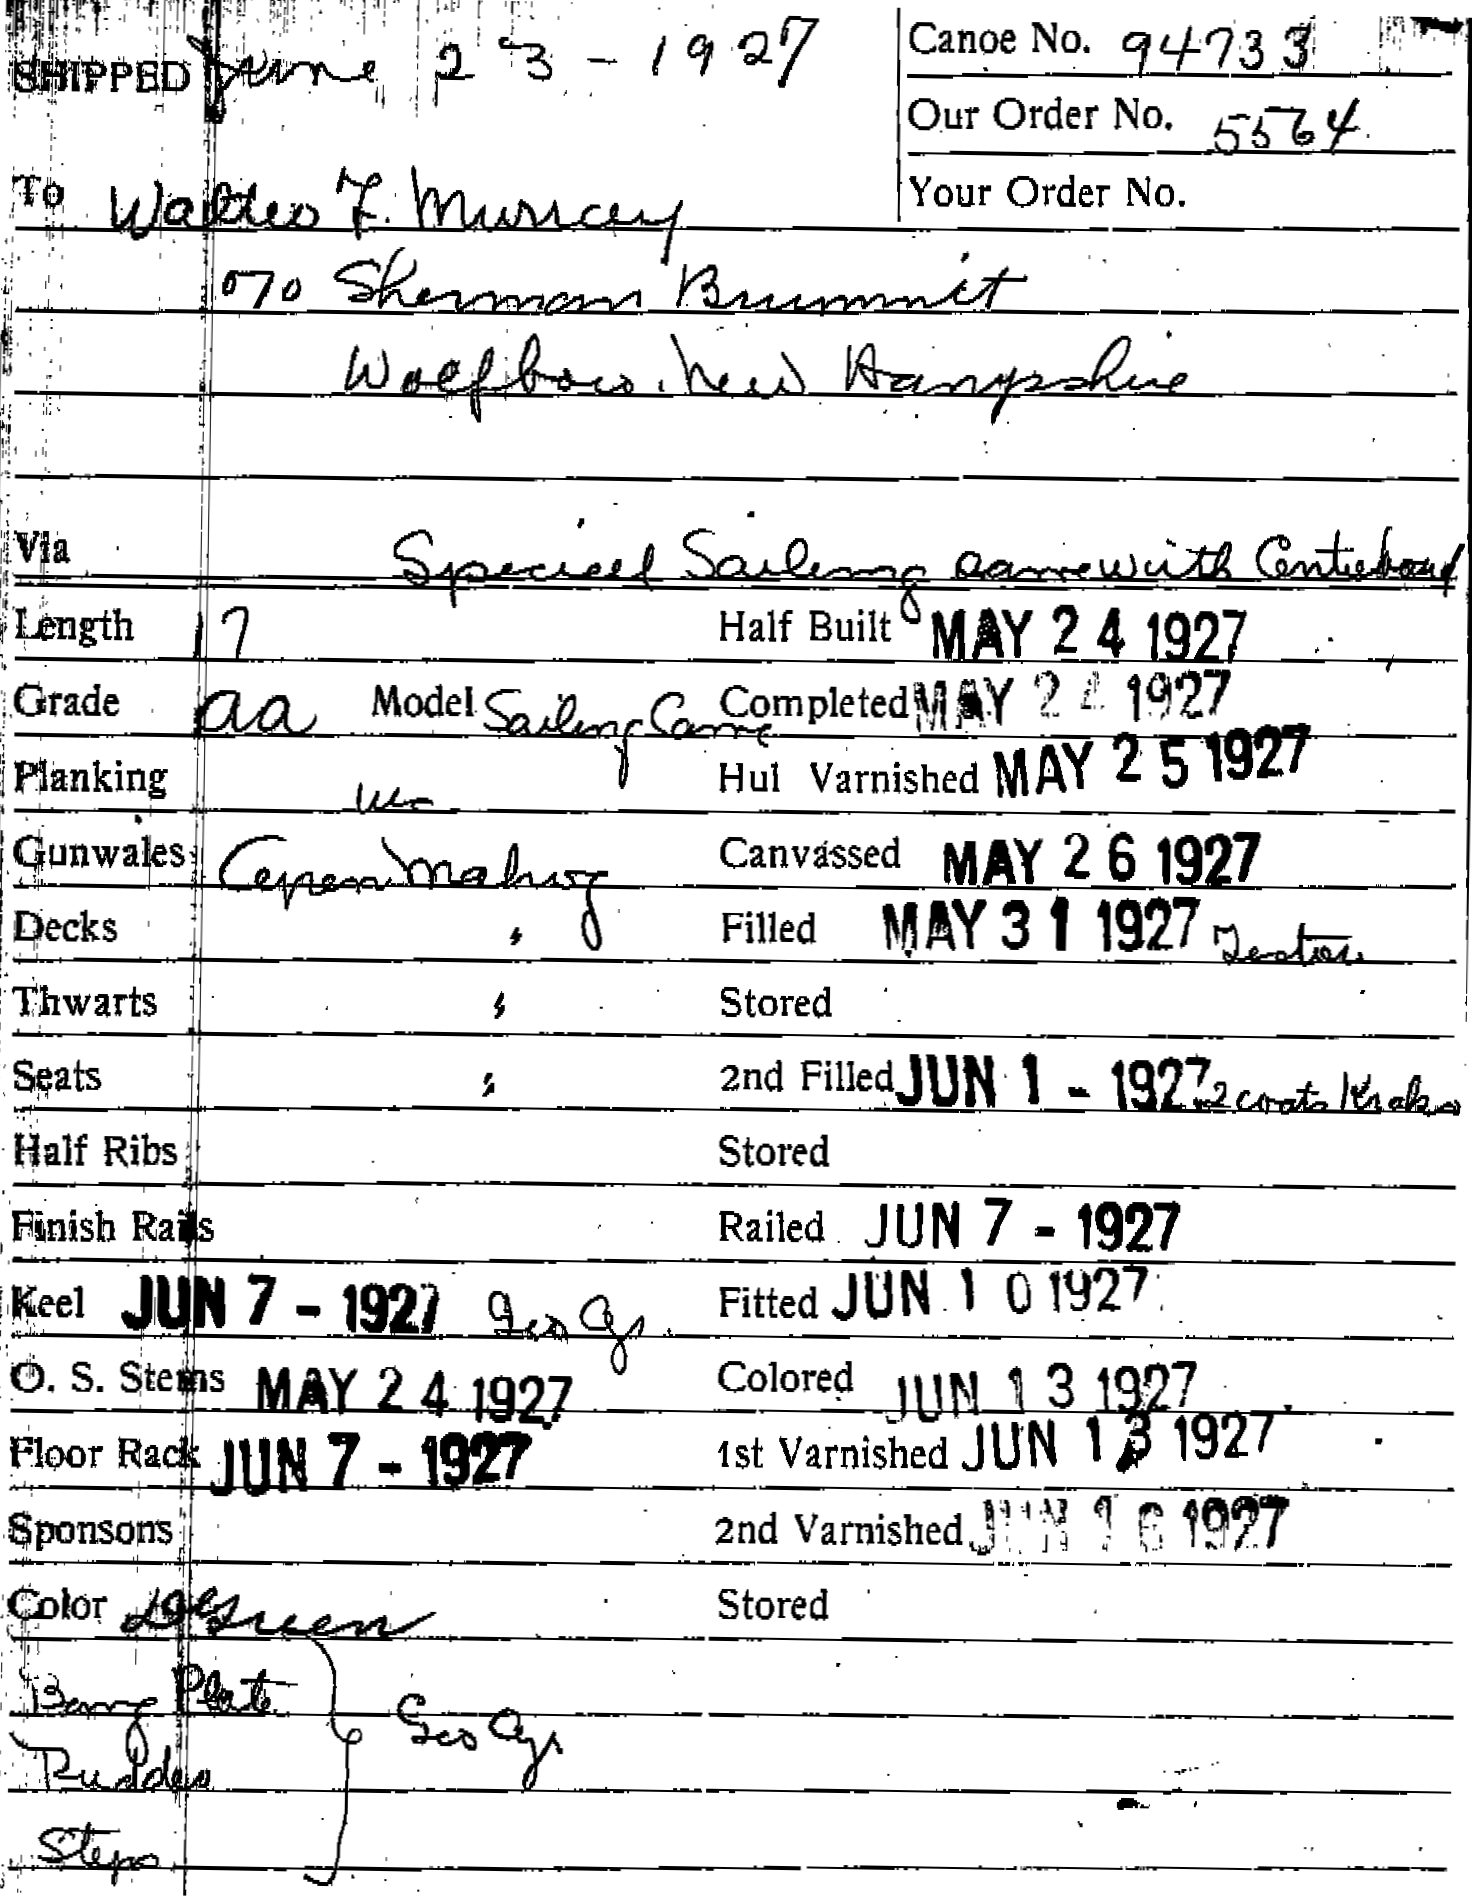 SHIPPED June 23 - 1927
Canoe No. 94733
Our Order No. 5564
Your Order No.
To Walter F. Murray
Sherman Brummit
Wolfboro. New Hampshire
Via Special Sailing canoe with Centerboard
Length 17
Half Built MAY 24 1927
Grade AA Model Sailing Canoe
Completed MAY 24 1927
Planking
Hul Varnished MAY 25 1927
Gunwales Open Mahog
Canvassed MAY 26 1927
Decks "
Filled MAY 31 1927
Thwarts "
Stored
Seats "
2nd Filled JUN 1 - 1927 2 coats
Half Ribs
Stored
Finish Rails
Railed JUN 7 - 1927
Keel JUN 7 - 1927 Geo
Fitted JUN 10 1927
O. S. Stems MAY 24 1927
Colored JUN 13 1927
Floor Rack JUN 7 - 1927
1st Varnished JUN 13 1927
Sponsons
2nd Varnished JUN 16 1927
Color Green
Stored
Plate
Geo
Rudder
Steps